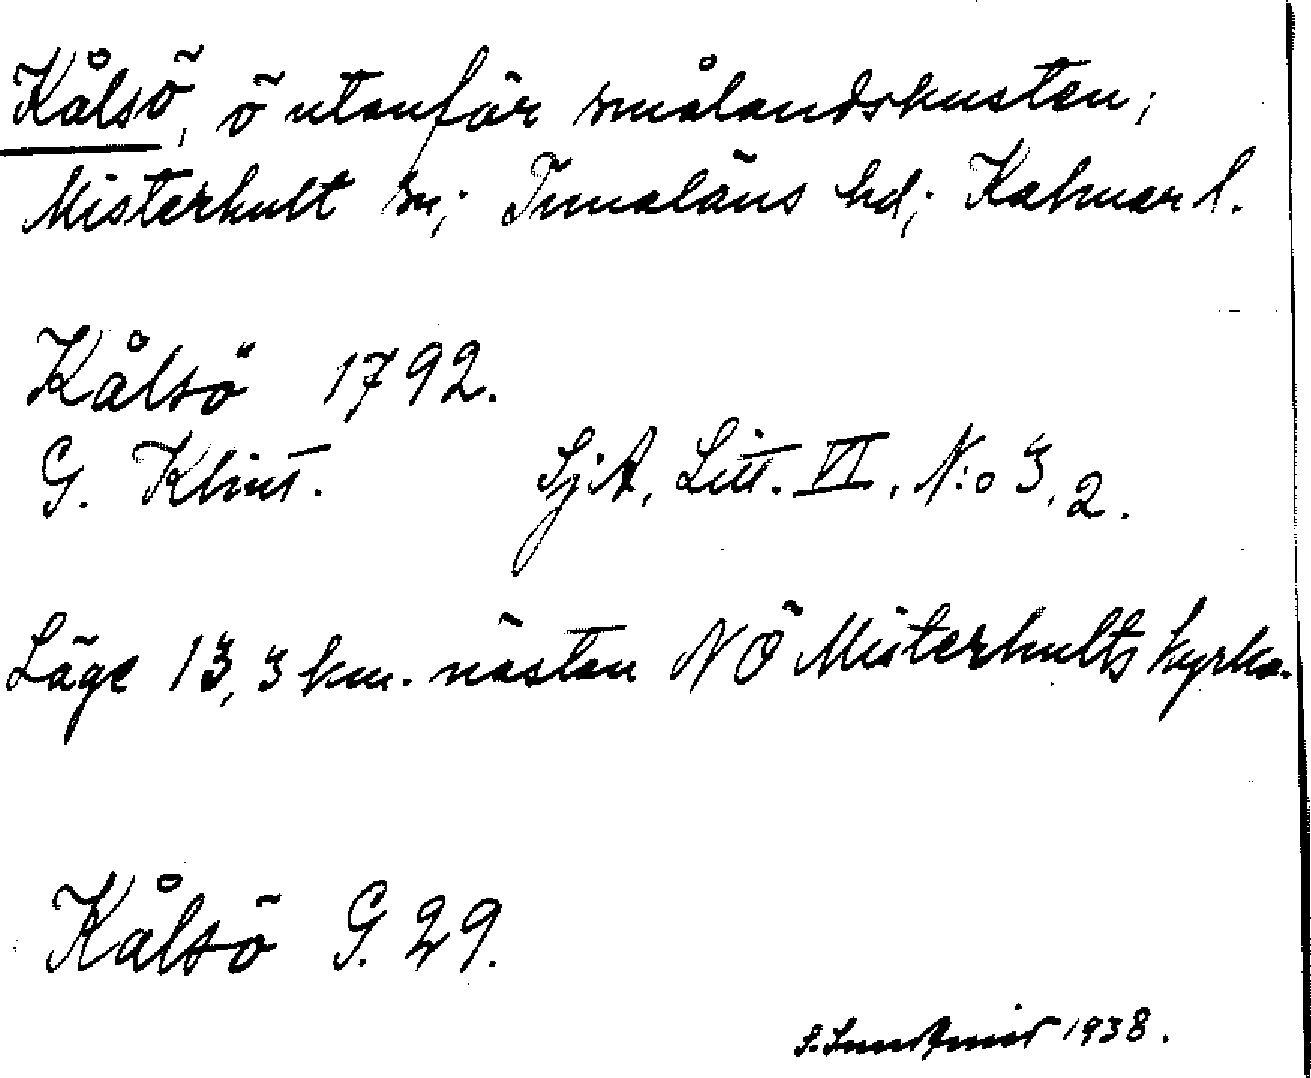 Kålsö, ö utanför smålandskusten;
Misterhult sn; Tunaläns hd; Kalmar l.
Kålsö 1792.
G. Klint. SjA, Litt. VI, N:o 3, 2.
Läge 13,3 km. nästan NÖ Misterhults kyrka.
Kålsö G. 29.
S. 1938.